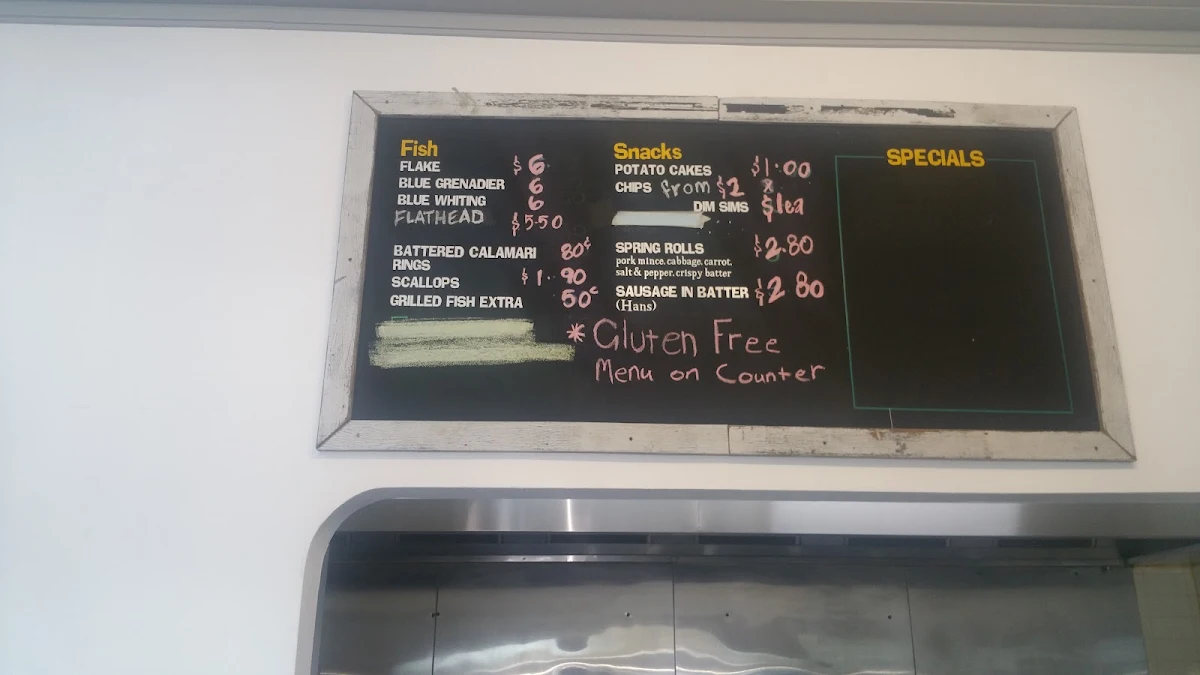 Fish
FLAKE $6
BLUE GRENADIER 6
BLUE WHITING 6
FLATHEAD $5·50
BATTERED CALAMARI 80¢
RINGS
SCALLOPS $1·90
GRILLED FISH EXTRA 50¢
Snacks
POTATO CAKES $1·00
CHIPS from $2
DIM SIMS $1ea
SPRING ROLLS $2.80
pork mince, cabbage, carrot,
salt & pepper, crispy batter
SAUSAGE IN BATTER $2 80
(Hans)
* Gluten Free
Menu on Counter
SPECIALS